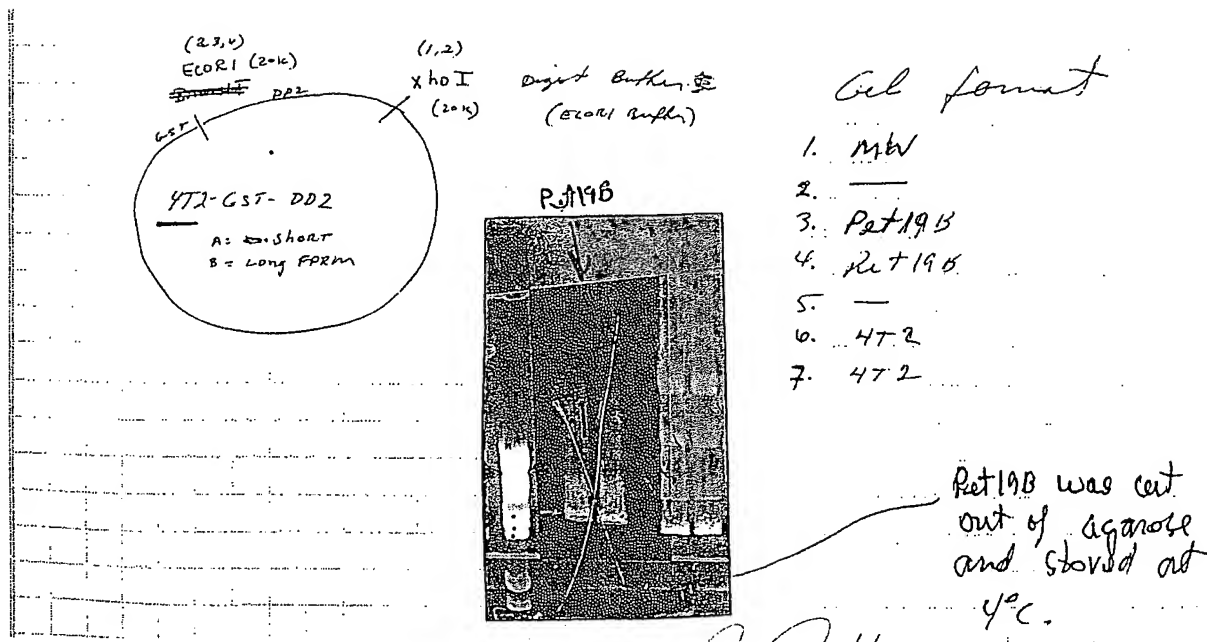 (2,3,4)
ECORI (20U)
DD2
GST
(1,2)
XhoI
(20U)
Digest Buffer
(ECORI Buffer)
4T2-GST-DD2
A: SHORT
B = Long FPRM
Pet19B
Gel format
1. MW
2. —
3. Pet19B
4. Pet19B
5. —
6. 4T2
7. 4T2
Pet19B was cut
out of agarose
and stored at
4°C.